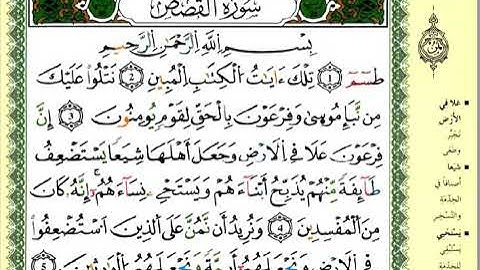 سُورَةُ القَصَصِ
بِسْمِ اللَّهِ الرَّحْمَٰنِ الرَّحِيمِ
طسٓمٓ ﴿١﴾ تِلْكَ ءَايَاتُ الْكِتَابِ الْمُبِينِ ﴿٢﴾ نَتْلُوا عَلَيْكَ
مِن نَّبَإِ مُوسَىٰ وَفِرْعَوْنَ بِالْحَقِّ لِقَوْمٍ يُؤْمِنُونَ ﴿٣﴾ إِنَّ
فِرْعَوْنَ عَلَا فِي الْأَرْضِ وَجَعَلَ أَهْلَهَا شِيَعًا يَسْتَضْعِفُ
طَآئِفَةً مِّنْهُمْ يُذَبِّحُ أَبْنَآءَهُمْ وَيَسْتَحْيِ نِسَآءَهُمْ إِنَّهُ كَانَ
مِنَ الْمُفْسِدِينَ ﴿٤﴾ وَنُرِيدُ أَن نَّمُنَّ عَلَى الَّذِينَ اسْتُضْعِفُوا
فِي الْأَرْضِ وَنَجْعَلَهُمْ أَئِمَّةً وَنَجْعَلَهُمُ الْوَارِثِينَ ﴿٥﴾
عَلَا فِي
الأَرْضِ
تَجَبَّرَ
وَطَغَى
شِيَعًا
أَصْنَافًا فِي
الخِدْمَةِ
وَالتَّسْخِيرِ
يَسْتَحْيِي
يَسْتَبْقِي
لِلْخِدْمَةِ